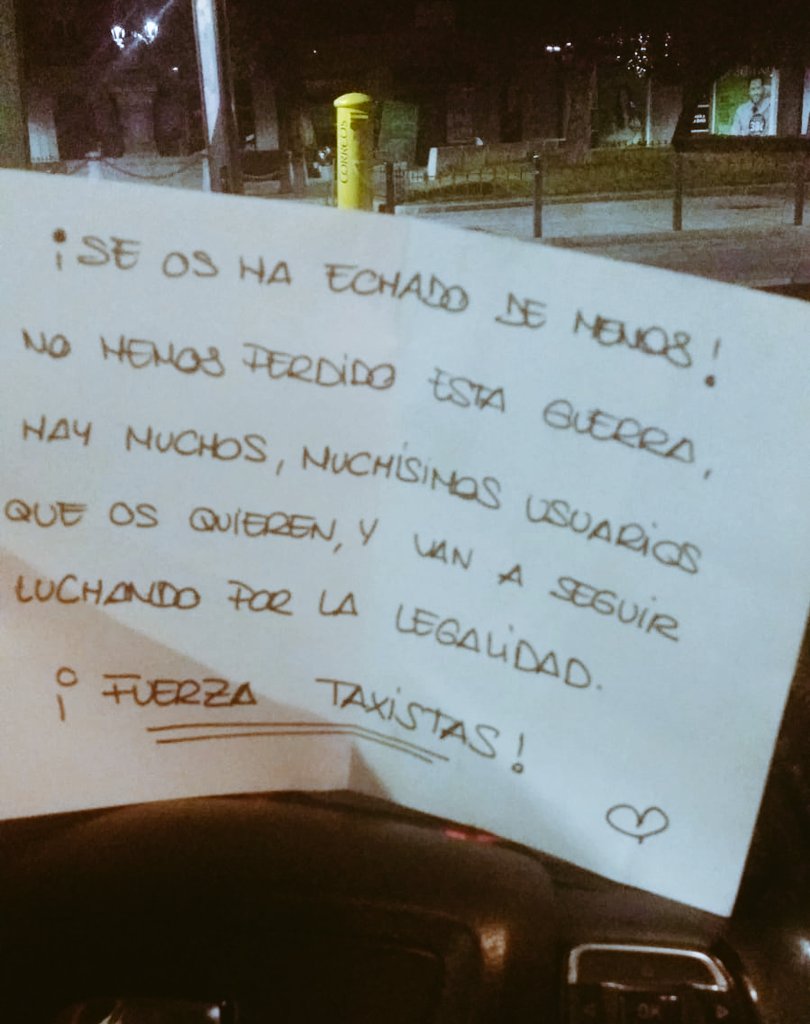 CORREOS
¡SE OS HA ECHADO DE MENOS!
NO HEMOS PERDIDO ESTA GUERRA,
HAY MUCHOS, MUCHÍSIMOS USUARIOS
QUE OS QUIEREN, Y VAN A SEGUIR
LUCHANDO POR LA LEGALIDAD.
¡FUERZA TAXISTAS!
OK